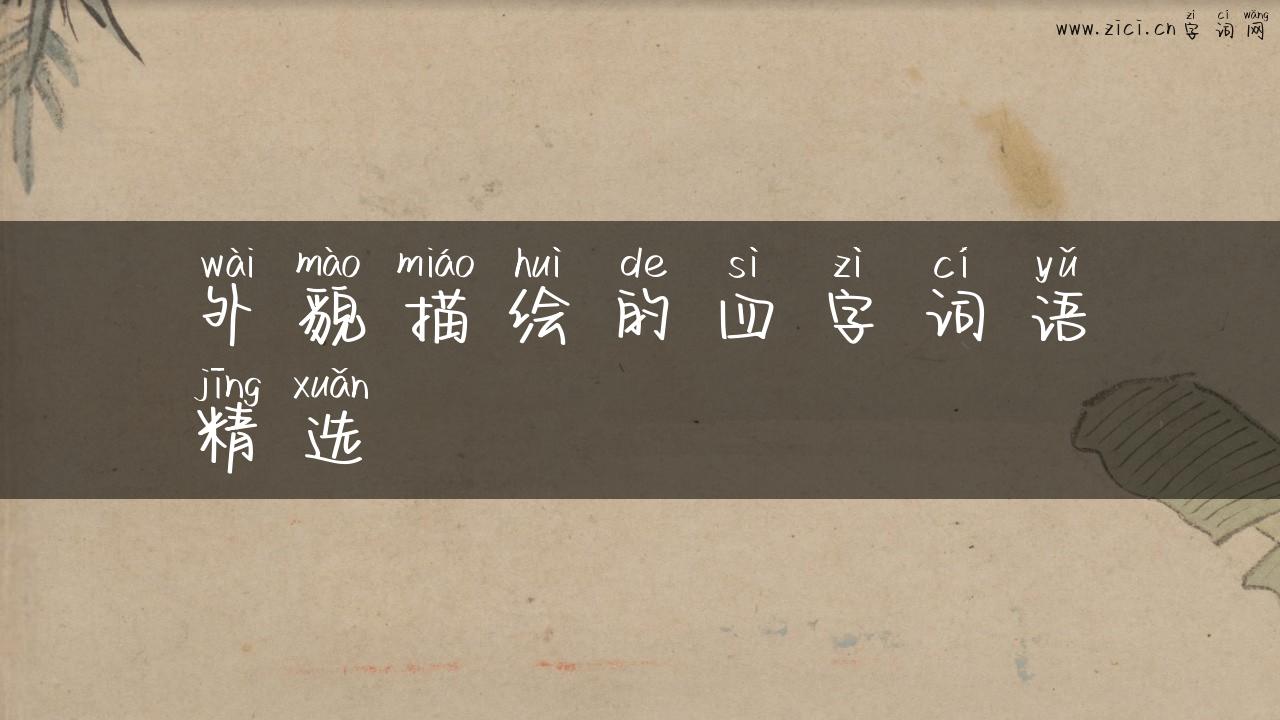 zì cí wǎng
www.zici.cn 字词网
wài mào miáo huì de sì zì cí yǔ
外貌描绘的四字词语
jīng xuǎn
精选